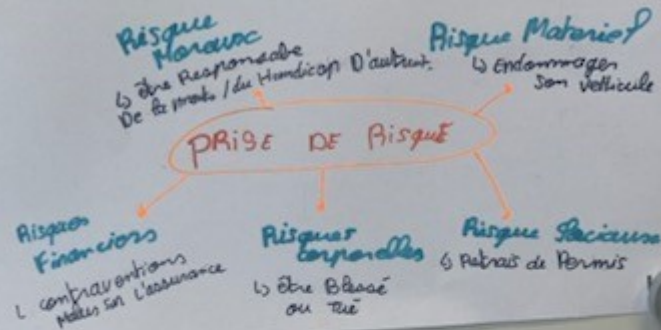 Risque
Moraux
↳ être Responsable
De la mort / du Handicap D'autrui.
Risque Matériel
↳ Endommager
Son véhicule
PRISE DE RISQUE
Risques
Financiers
↳ contraventions
Malus sur L'assurance
Risques
corporelles
↳ être Blessé
ou Tué
Risque Sociaux
↳ Retrait de Permis